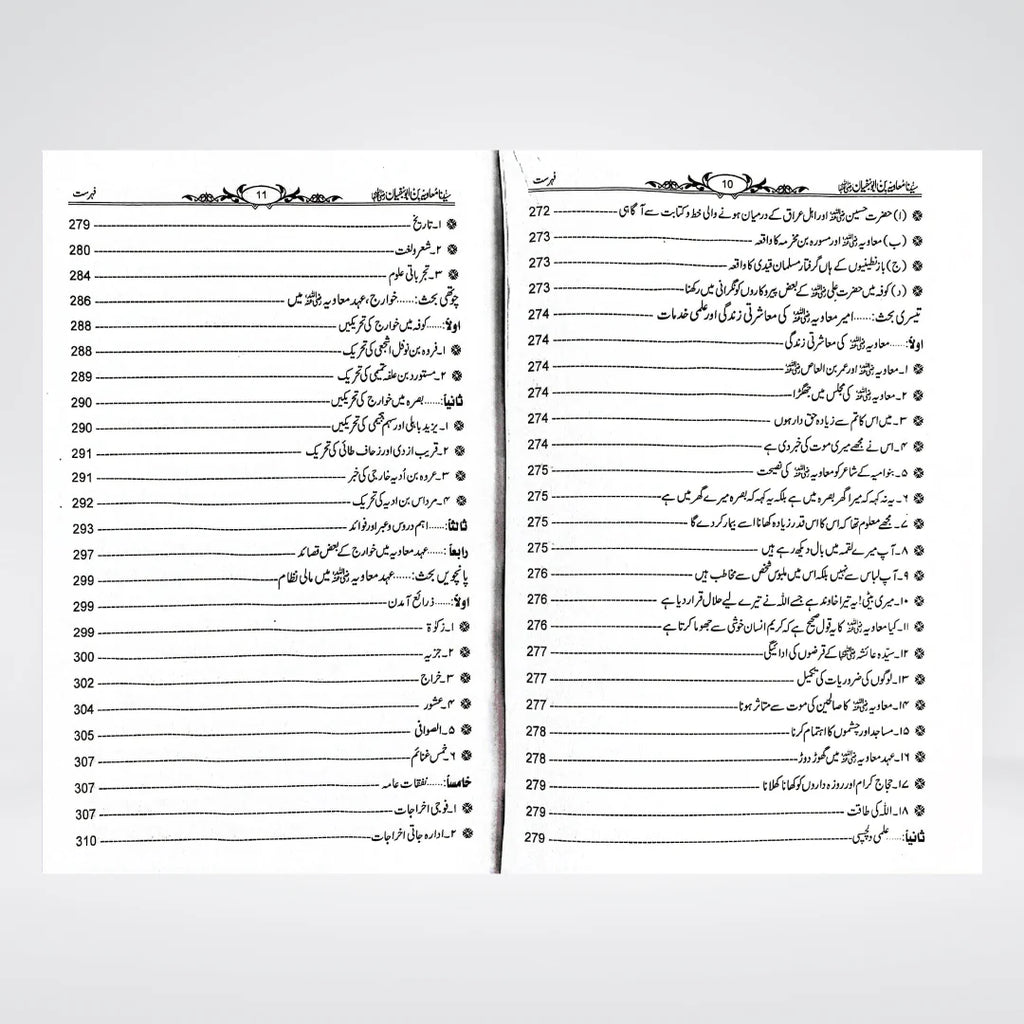 سیدنا معاویہ بن ابوسفیان رضی اللہ عنہ 10 فہرست
(ا) حضرت حسین رضی اللہ عنہ اور اہل عراق کے درمیان ہونے والی خط و کتابت سے آگاہی 272
(ب) معاویہ رضی اللہ عنہ اور مسورہ بن مخرمہ کا واقعہ 273
(ج) بازنطینیوں کے ہاں گرفتار مسلمان قیدی کا واقعہ 273
(د) کوفہ میں حضرت علی رضی اللہ عنہ کے بعض پیروکاروں کو نگرانی میں رکھنا 273
تیسری بحث:...... امیر معاویہ رضی اللہ عنہ کی معاشرتی زندگی اور علمی خدمات 274
اولاً:...... معاویہ رضی اللہ عنہ کی معاشرتی زندگی 274
۱۔ معاویہ رضی اللہ عنہ اور عمر بن العاص رضی اللہ عنہ 274
۲۔ معاویہ رضی اللہ عنہ کی مجلس میں جھگڑا 274
۳۔ میں اس کا تم سے زیادہ حق دار ہوں 274
۴۔ اس نے مجھے میری موت کی خبر دی ہے 274
۵۔ بنو امیہ کے شاعر کو معاویہ رضی اللہ عنہ کی نصیحت 275
۶۔ یہ نہ کہہ کہ میرا گھر بصرہ میں ہے بلکہ یہ کہہ کہ بصرہ میرے گھر میں ہے 275
۷۔ مجھے معلوم تھا کہ اس کا اس قدر زیادہ کھانا اسے بیمار کر دے گا 275
۸۔ آپ میرے لقمہ میں بال دیکھ رہے ہیں 275
۹۔ آپ لباس سے نہیں بلکہ اس میں ملبوس شخص سے مخاطب ہیں 276
۱۰۔ میری بیٹی! یہ تیرا خاوند ہے جسے اللہ نے تیرے لیے حلال قرار دیا ہے 276
۱۱۔ کیا معاویہ رضی اللہ عنہ کا یہ قول صحیح ہے کہ کریم انسان خوشی سے جھوما کرتا ہے 276
۱۲۔ سیّدہ عائشہ رضی اللہ عنہا کے قرضوں کی ادائیگی 277
۱۳۔ لوگوں کی ضروریات کی تکمیل 277
۱۴۔ معاویہ رضی اللہ عنہ کا صالحین کی موت سے متاثر ہونا 277
۱۵۔ مساجد اور چشموں کا اہتمام کرنا 278
۱۶۔ عہد معاویہ رضی اللہ عنہ میں گھوڑ دوڑ 278
۱۷۔ حجاج کرام اور روزہ داروں کو کھانا کھلانا 279
۱۸۔ اللہ کی طاقت 279
ثانیاً:...... علمی دلچسپی 279
سیدنا معاویہ بن ابوسفیان رضی اللہ عنہ 11 فہرست
۱۔ تاریخ 279
۲۔ شعر و لغت 280
۳۔ تجرباتی علوم 284
چوتھی بحث:...... خوارج، عہد معاویہ رضی اللہ عنہ میں 286
اولاً:...... کوفہ میں خوارج کی تحریکیں 288
۱۔ فروہ بن نوفل اشجعی کی تحریک 288
۲۔ مستورد بن علفہ تیمی کی تحریک 289
ثانیاً:...... بصرہ میں خوارج کی تحریکیں 290
۱۔ یزید باہلی اور سہم ہجیمی کی تحریکیں 290
۲۔ قریب ازدی اور زحاف طائی کی تحریک 291
۳۔ عروہ بن اُدیہ خارجی کی خبر 291
۴۔ مرداس بن ادیہ کی تحریک 292
ثالثاً:...... اہم دروس و عبر اور فوائد 293
رابعاً:...... عہد معاویہ میں خوارج کے بعض قصائد 297
پانچویں بحث:...... عہد معاویہ رضی اللہ عنہ میں مالی نظام 299
اولاً:...... ذرائع آمدن 299
۱۔ زکوٰۃ 299
۲۔ جزیہ 300
۳۔ خراج 302
۴۔ عشور 304
۵۔ الصوافی 305
۶۔ خمس غنائم 307
خامساً:...... نفقات عامہ 307
۱۔ فوجی اخراجات 307
۲۔ ادارہ جاتی اخراجات 310